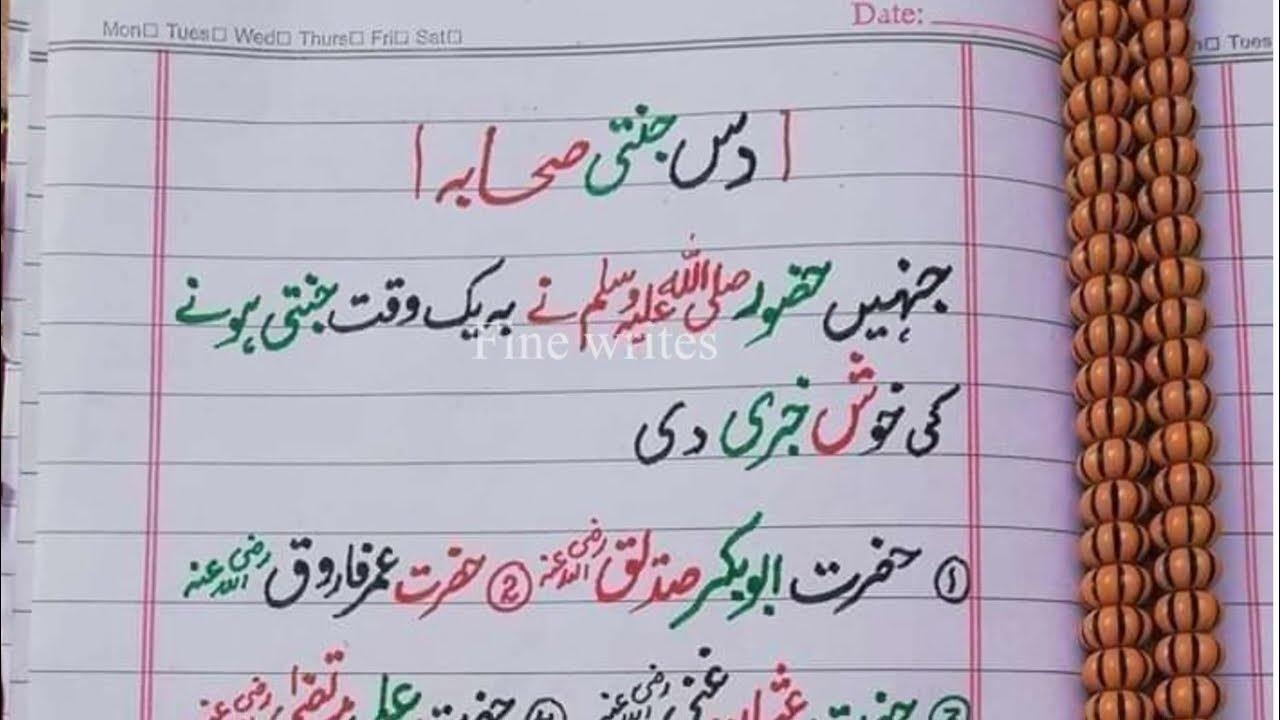 Mon□ Tues□ Wed□ Thurs□ Fri□ Sat□
Date:
□ Tues
دس جنتی صحابہ
جنہیں حضور صلی اللہ علیہ وسلم نے بہ یک وقت جنتی ہونے
Fine writes
کی خوش خبری دی
① حضرت ابوبکر صدیق رضی اللہ عنہ ② حضرت عمر فاروق رضی اللہ عنہ
③ حضرت عثمان غنی رضی اللہ عنہ ④ حضرت علی مرتضیٰ رضی اللہ عنہ